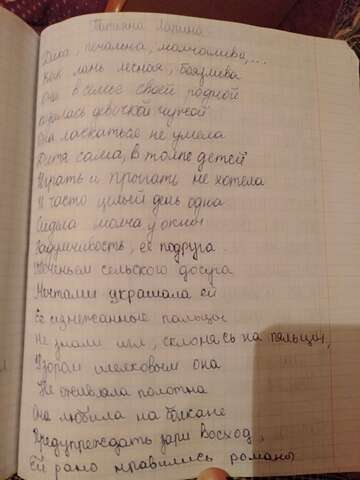 Татьяна Ларина
Дика, печальна, молчалива,...
Как лань лесная, боязлива
Она в семье своей родной
Казалась девочкой чужой
Она ласкаться не умела
Дитя сама, в толпе детей
Играть и прыгать не хотела
И часто целый день одна
Сидела молча у окна
Задумчивость, её подруга
Теченьем сельского досуга
Мечтами украшала ей
Её изнеженные пальцы
Не знали игл, склонясь на пяльцы,
Узором шелковым она
Не оживляла полотна
Она любила на балконе
Предупреждать зари восход,
Ей рано нравились романы